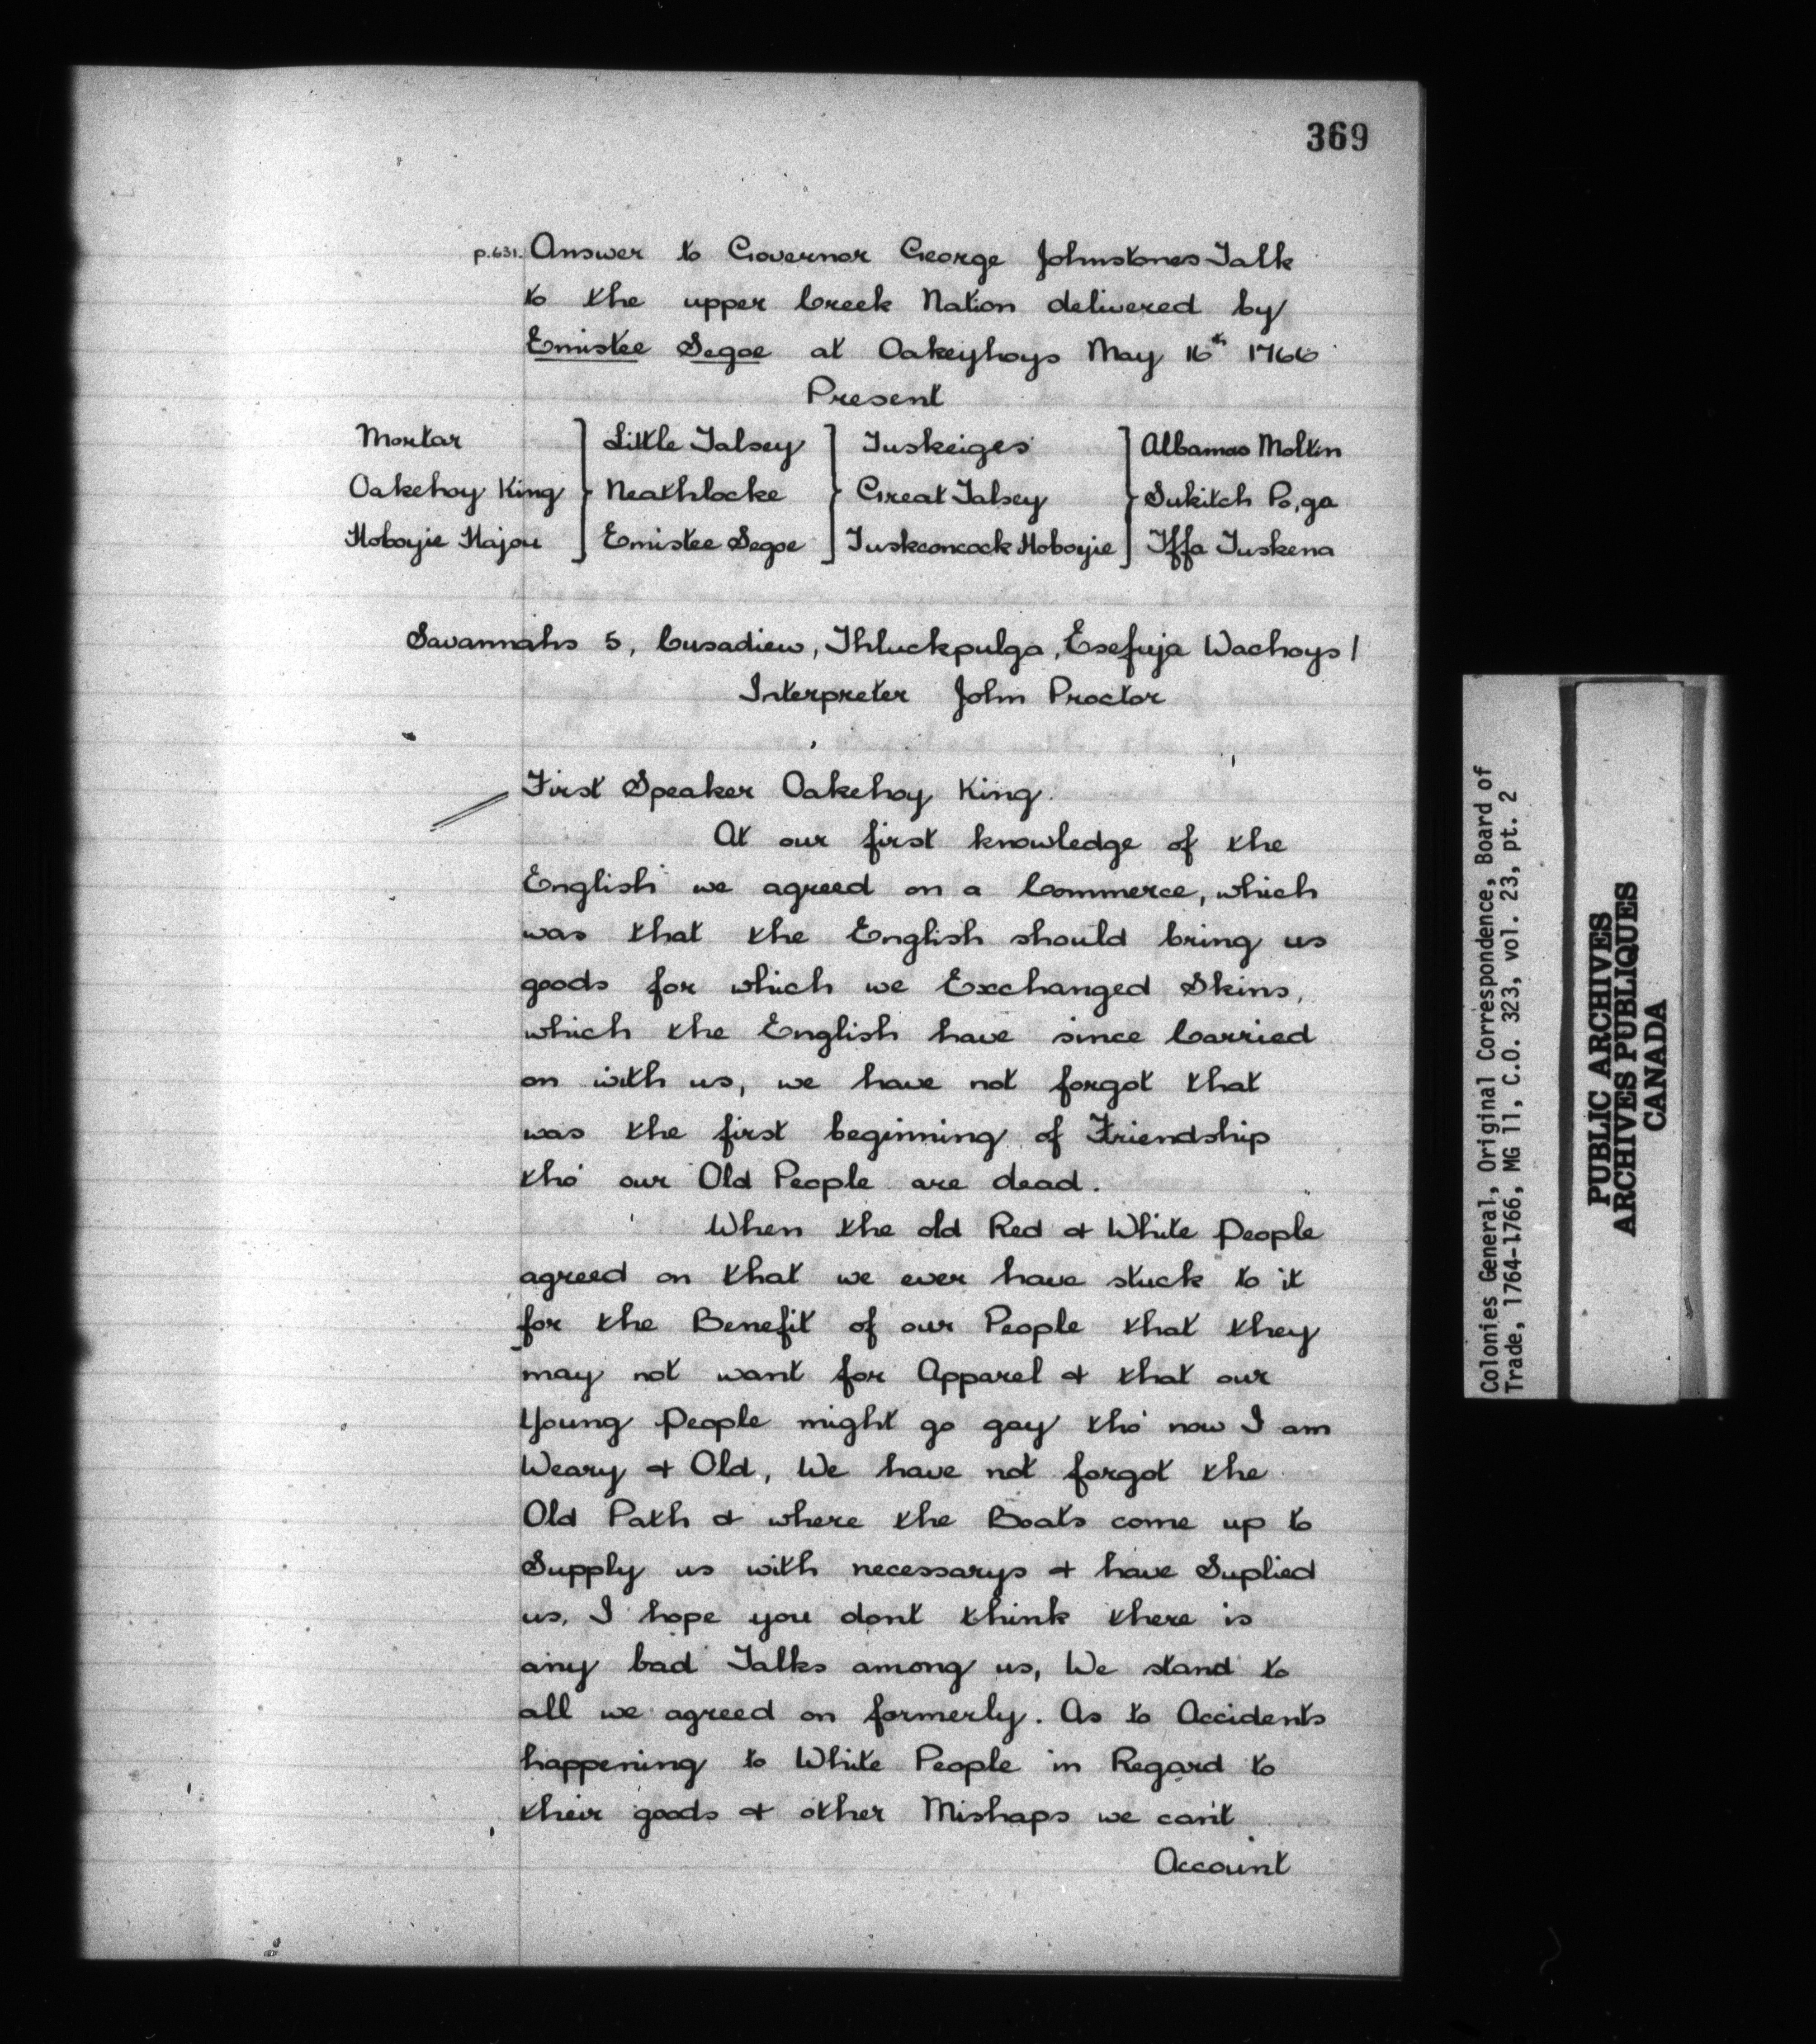 369
p.631. Answer to Governor George Johnstones Talk
to the upper Creek Nation delivered by
Emistee Segoe at Oakeyhoys May 16th 1766
Present
Mortar } Little Talsey } Tuskeiges } Albamas Moltin
Oakehoy King } Neathlocke } Great Talsey } Sukitch Po,ga
Hoboyie Hajou } Emistee Segoe } Tuskconcock Hoboyie } Iffa Tuskena
Savannahs 5, Cusadiew, Thluckpulga, Esefuja Wachoys /
Interpreter John Proctor
First Speaker Oakehoy King.
At our first knowledge of the
English we agreed on a Commerce, which
was that the English should bring us
goods for which we Exchanged Skins,
which the English have since Carried
on with us, we have not forgot that
was the first beginning of Friendship
tho' our Old People are dead.
When the old Red & White People
agreed on that we ever have stuck to it
for the Benefit of our People that they
may not want for Apparel & that our
Young People might go gay tho' now I am
Weary & Old, We have not forgot the
Old Path & where the Boats come up to
Supply us with necessarys & have Suplied
us, I hope you dont think there is
any bad Talks among us, We stand to
all we agreed on formerly. As to Accidents
happening to White People in Regard to
their goods & other Mishaps we can't
Account
Colonies General, Original Correspondence, Board of
Trade, 1764-1766, MG 11, C.O. 323, vol. 23, pt. 2
PUBLIC ARCHIVES
ARCHIVES PUBLIQUES
CANADA